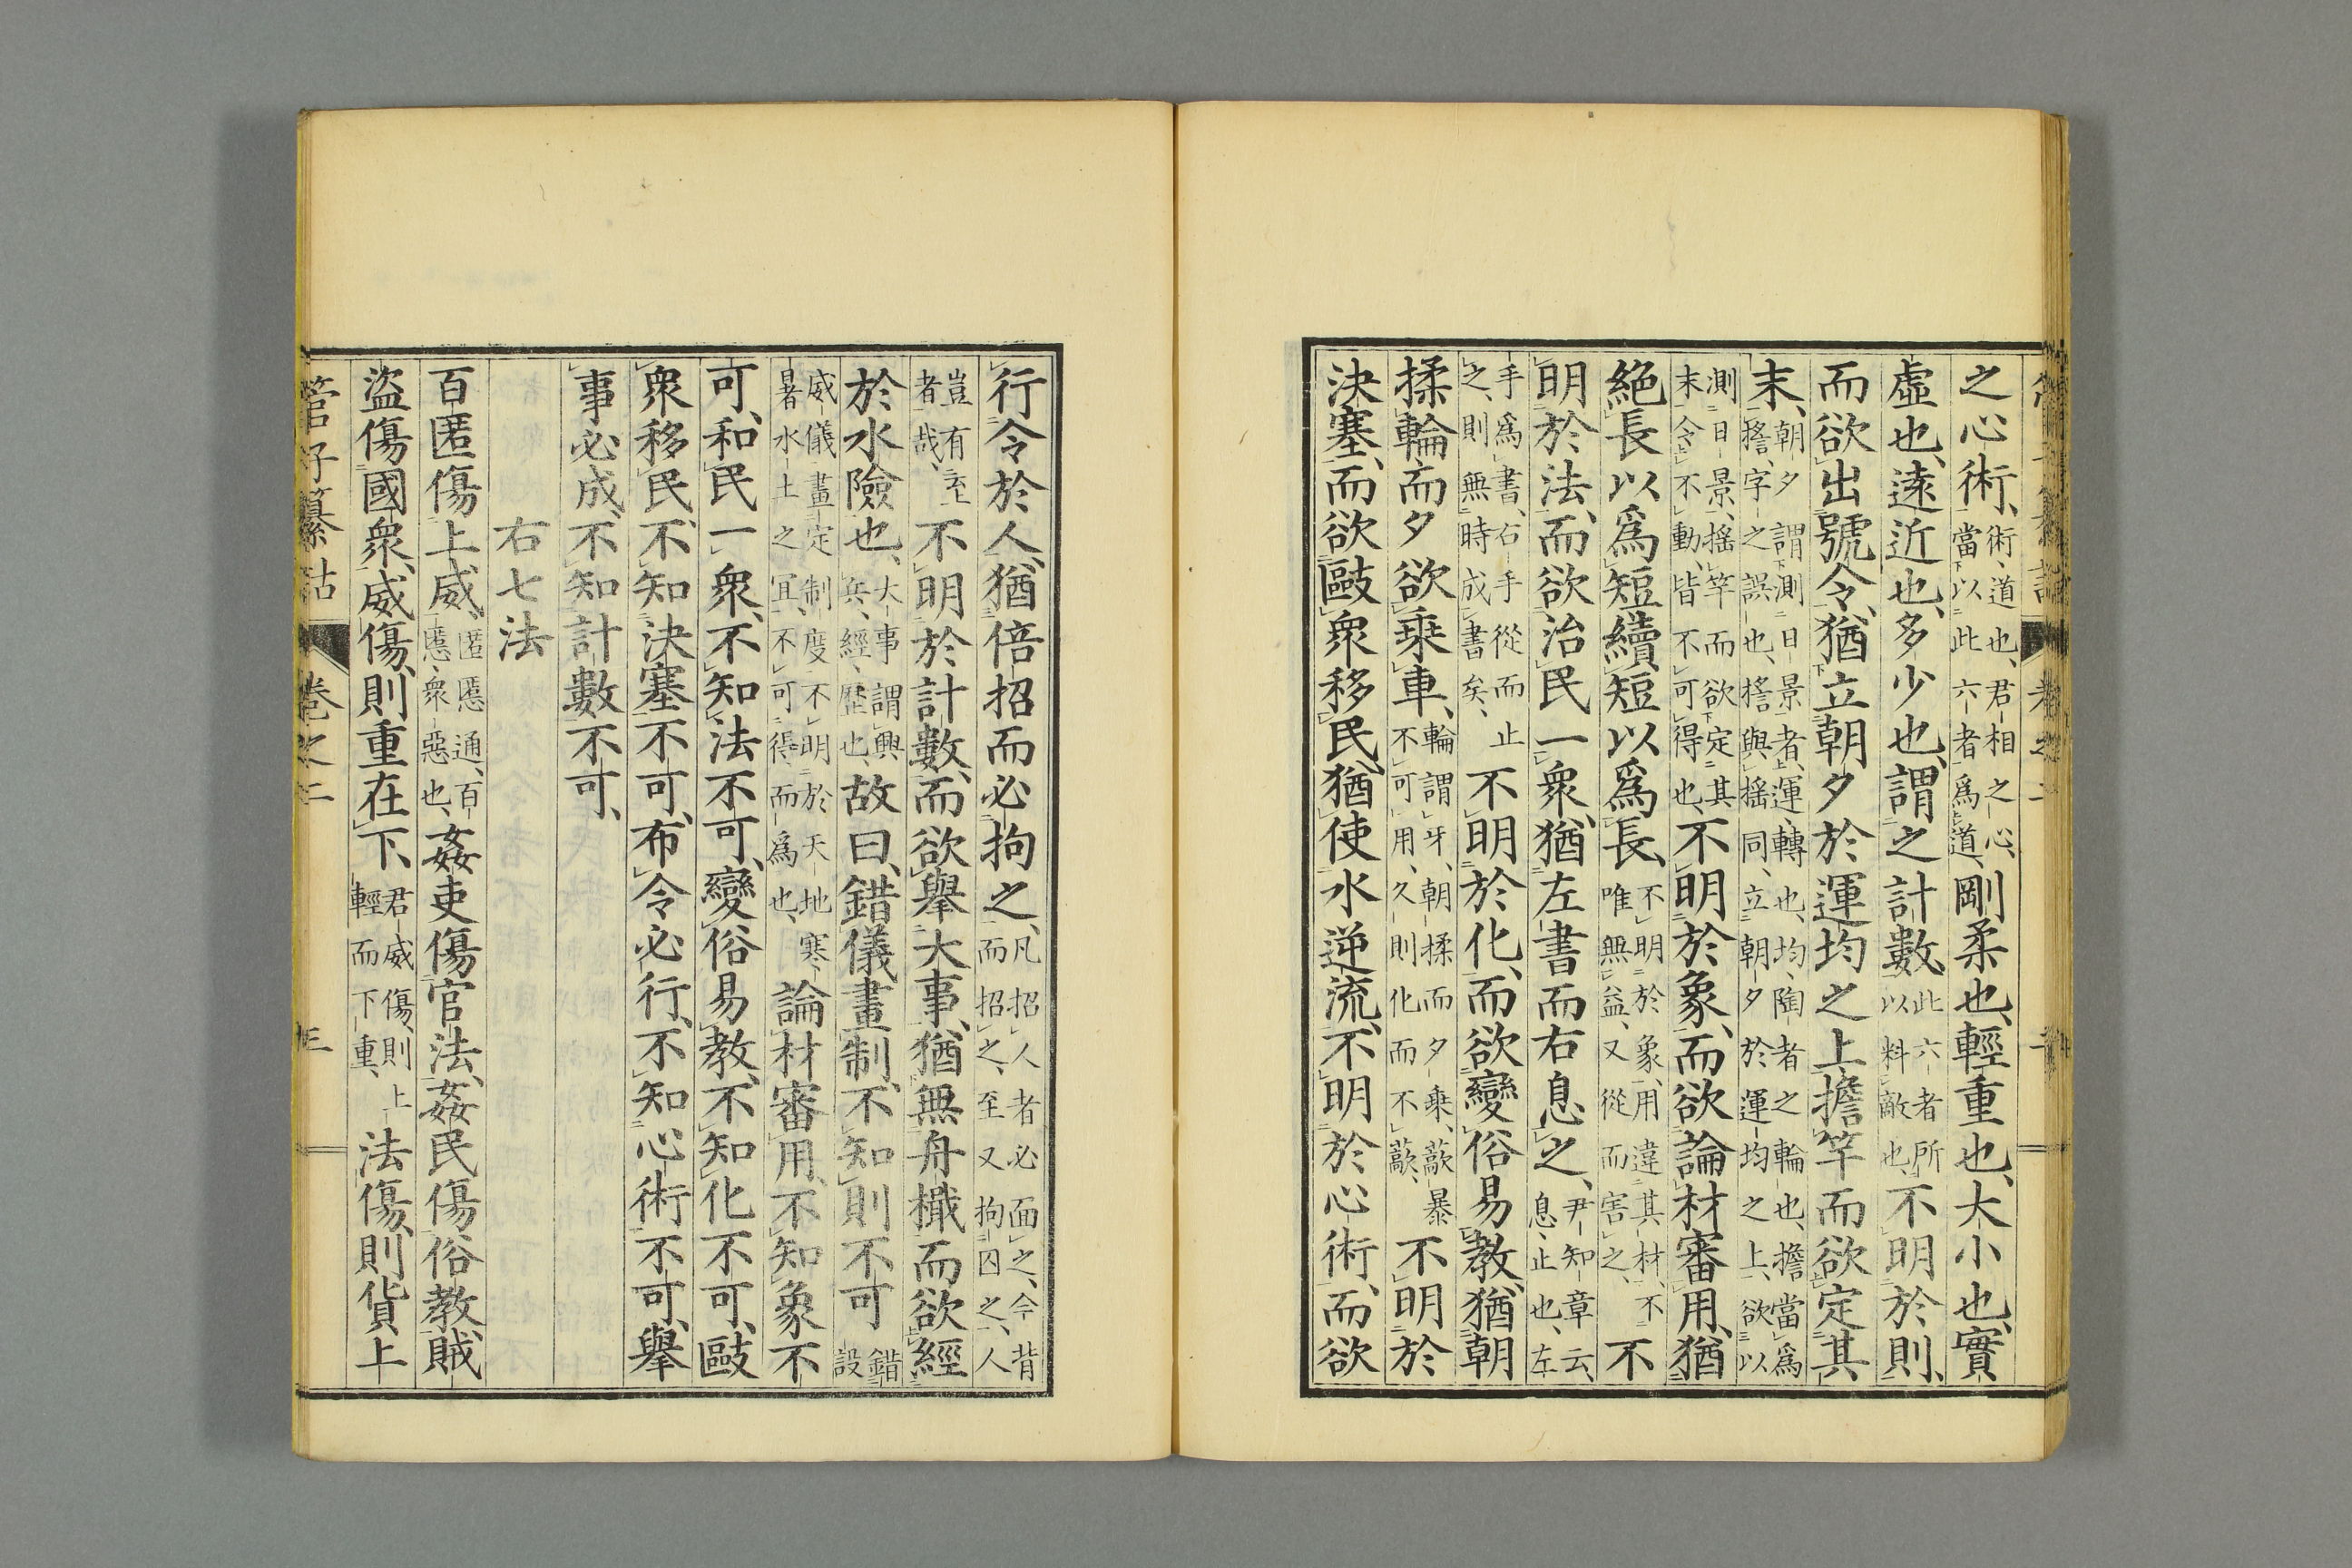 之心術、術、道也、君相之心、當以此六者爲道、剛柔也、輕重也、大小也、實
虛也、遠近也、多少也、謂之計數、此六者所以料敵也、不明於則、
而欲出號令、猶立朝夕於運均之上、擔竿而欲定其
末、朝夕謂測日景者、運、轉也、均、陶者之輪也、擔當爲㩇、字之誤也、㩇與搖同、立朝夕於運均之上、欲以
測日景、搖竿而欲定其末令不動、皆不可得也、不明於象、而欲論材審用、猶
絕長以爲短、續短以爲長、不明於象、用違其材、不唯無益、又從而害之、不
明於法、而欲治民一衆、猶左書而右息之、尹知章云、息、止也、左
手爲書、右手從而止之、則無時成書矣、不明於化、而欲變俗易教、猶朝
揉輪而夕欲乘車、輪謂牙、朝揉而夕乘、歊暴不可用、久則化而不歊、不明於
決塞、而欲敺衆移民、猶使水逆流、不明於心術、而欲
行令於人、猶倍招而必拘之、凡招人者必面之、今背而招之、至又拘囚之、人
豈有至者哉、不明於計數、而欲舉大事、猶無舟檝而欲經
於水險也、大事謂興兵、經、歷也、故曰、錯儀畫制、不知則不可、錯設
威儀畫定制度、不明於天地寒暑水土之冝、不可得而爲也、論材審用、不知象不
可、和民一衆、不知法不可、變俗易教、不知化不可、敺
衆移民、不知決塞不可、布令必行、不知心術不可、舉
事必成、不知計數不可、
右七法
百匿傷上威、匿慝通、百慝、衆惡也、姦吏傷官法、姦民傷俗教、賊
盜傷國衆、威傷、則重在下、君威傷、則上輕而下重、法傷、則貨上
管子纂詁
卷之二
三